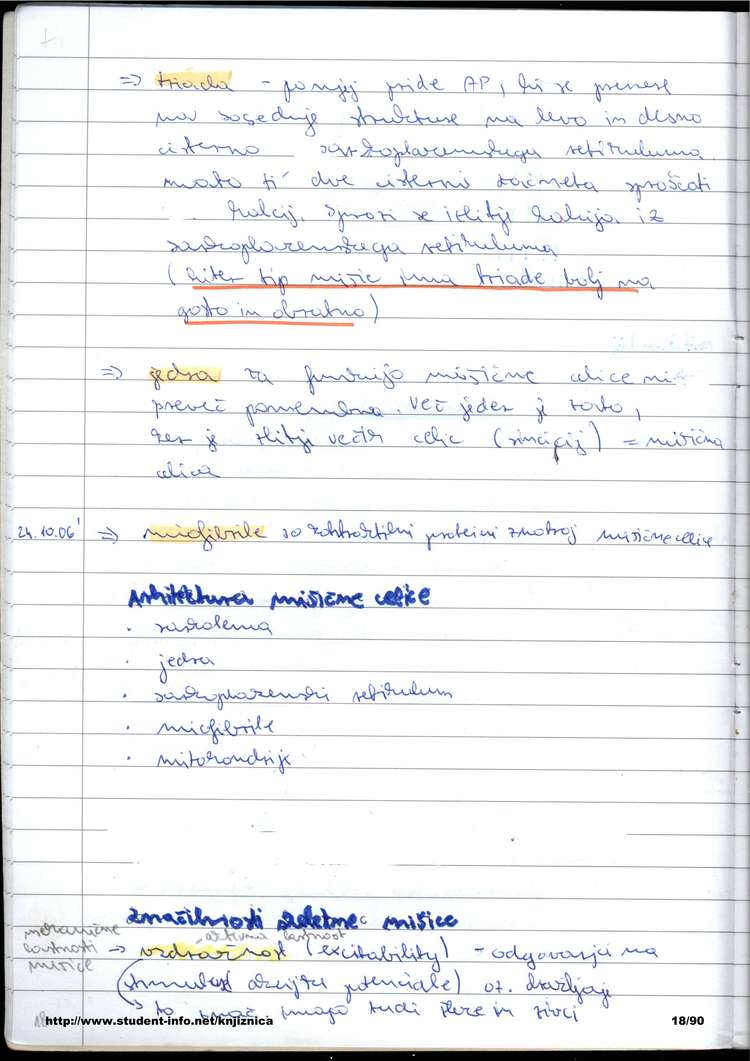 ⇒ triada - po njej pride AP, ki se prenese
na sosednje strukture na levo in desno
cisterno sarkoplazemskega retikuluma
nato ti dve cisterni začneta sproščati
kalcij. Sproži se izlitje kalcija iz
sarkoplazemskega retikuluma
(hiter tip mišic ima triade bolj na
gosto in obratno)
⇒ jedra za funkcijo mišične celice ni
preveč pomembna. Več jeder je zato,
ker je zlitje večih celic (sincicij) = mišična
celica
24.10.06' ⇒ miofibrile so kontraktilni proteini znotraj mišične celice
Arhitektura mišične celice
· sarkolema
· jedra
· sarkoplazemski retikulum
· miofibrile
· mitohondrije
Značilnosti skeletne mišice
mehanične lastnosti mišice
- aktivna lastnost
→ vzdražnost (excitability) - odgovarja na
(stimulus akcijski potenciale) oz. dražljaj
→ to imajo tudi žleze in živci
http://www.student-info.net/knjiznica 18/90